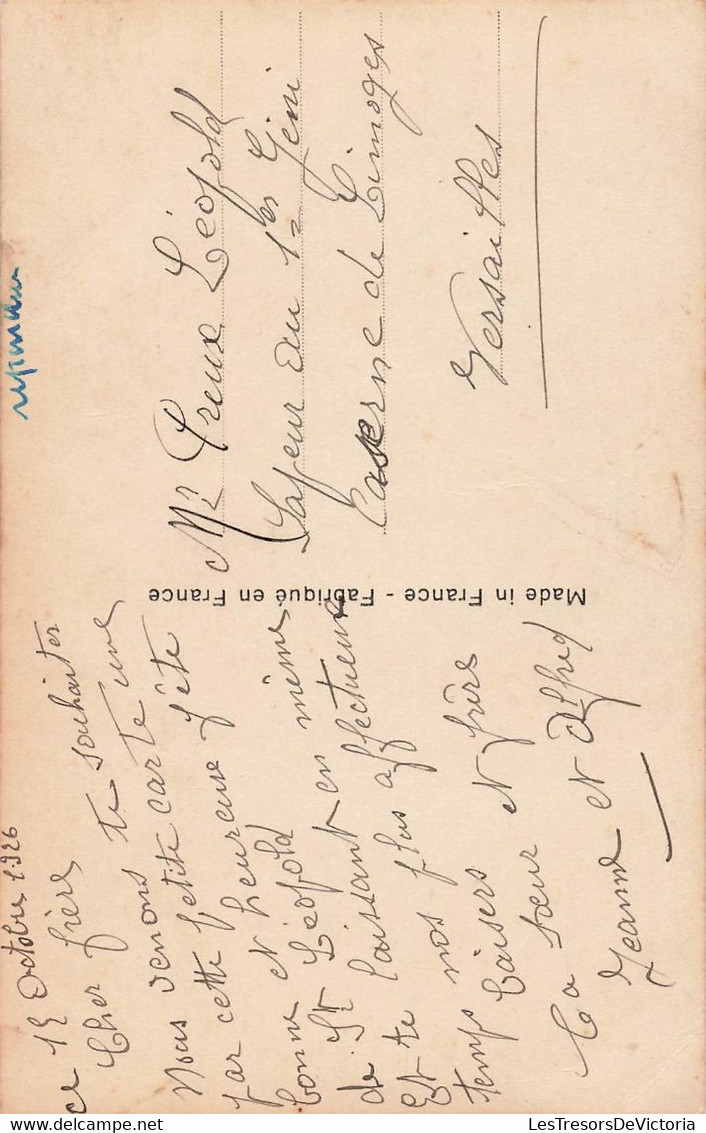 ce 15 Octobre 1926
Cher frère
Nous venons te souhaiter
par cette petite carte une
bonne et heureuse fête
de St Léopold en même
temps
Et te laissant
nos plus affectueux
baisers et frère
Ta sœur
Jeanne et Alfred
Made in France - Fabriqué en France
Mr Preux Léopold
Sapeur au 1er Géni
Caserne de Limoges
Versailles
LesTresorsDeVictoria
delcampe.net